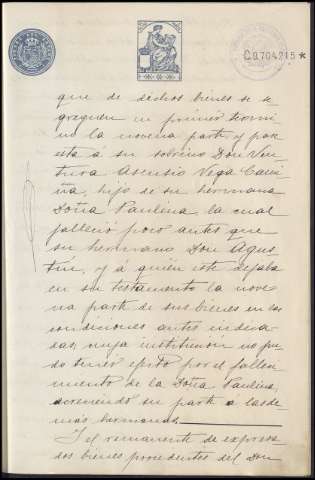 C.0.704,215 *
que de dichos bienes se se-
greguen en primer termi-
no la novena parte y pase
esta á su sobrino Don Ven-
tura Asensio Vega Cami-
ña, hijo de su hermana
Doña Paulina, la cual
falleció poco antes que
su hermano Don Agus-
tín, y á quién este dejaba
en su testamento la nove-
na parte de sus bienes en las
condiciones antes indica-
das, cuya institución no pu-
do tener efecto por el falleci-
miento de la Doña Paulina,
acreciendo su parte á las de-
más hermanas.
Y el remanente de expresa-
dos bienes procedentes del Don